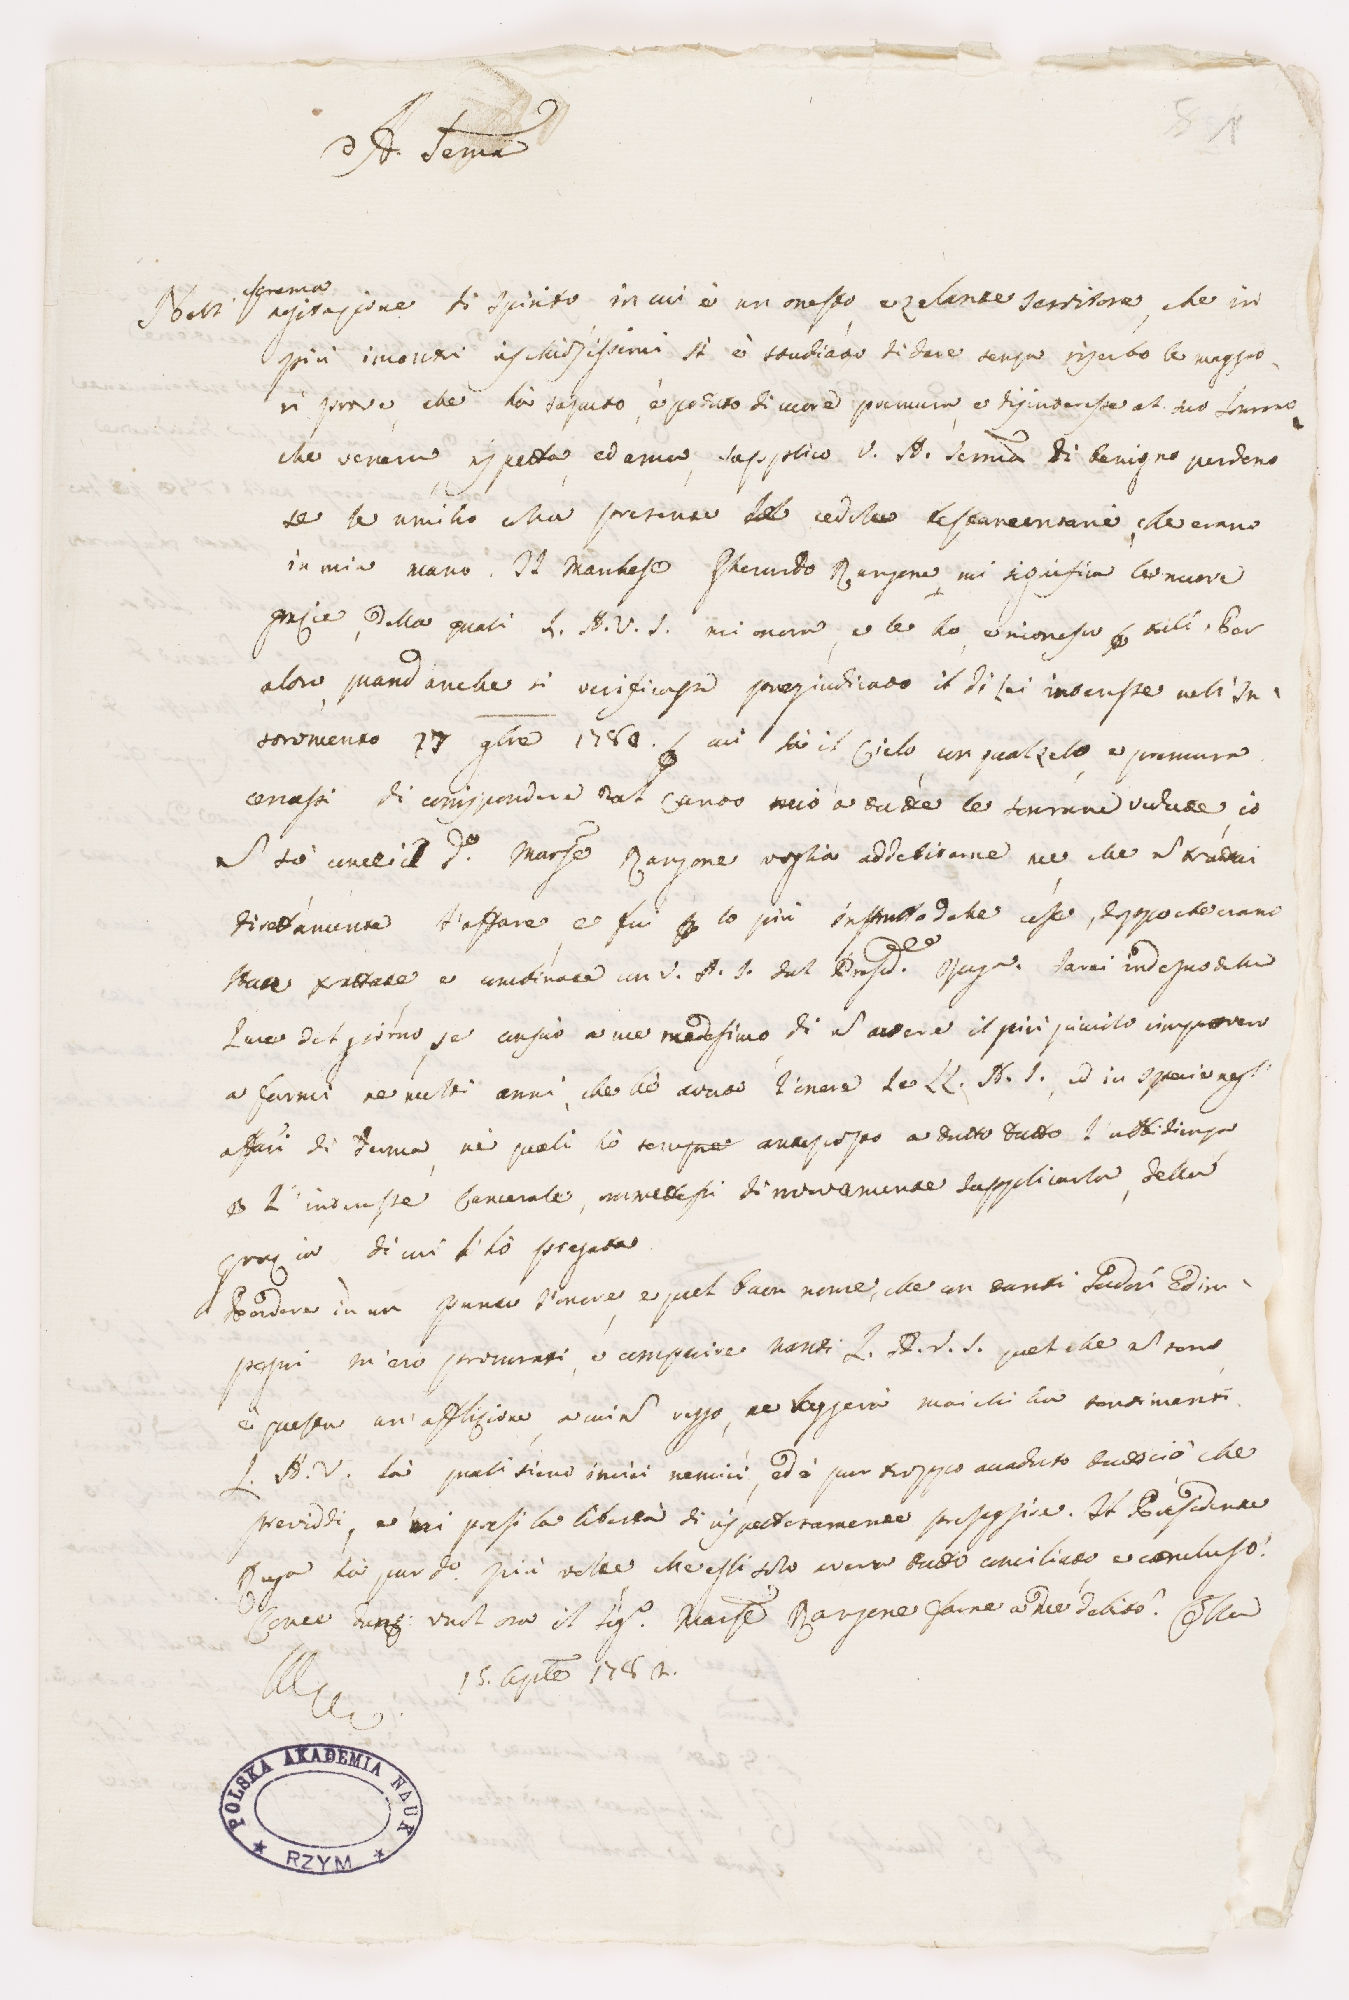 A. Serma
Nell' estrema agitazione di spirito in cui è un onesto, e zelante servitore, che in
più incontri rischiosissimi si è studiato di dare senza riserbo le maggio-
ri prove, che hà saputo, e potuto di vero premura e disinteresse al suo Sovrano
che venera, rispetta, ed ama, supplico V. A. Serma di benigno perdono
se le umilio colla presente le cedole testamentarie, che erano
in mia mano. Il Marchese Gherardo Rangone mi significa le nuove
grazie, delle quali L. A. V. S. mi onora, e le ho, e riconosco p tali. Per
altro, quand'anche si verificasse pregiudicato il di Lei interesse nell' In-
strumento 27 9bre 1780. p cui sà il Cielo con qual zelo, e premura
cercassi di corrispondere dal canto mio a tutte le sovrane vedute, io
sò come il do. Marse Rangone voglia addebitarne me, che trattai
direttamente l'affare, e fui p lo più instrutto delle cose, doppo che erano
state trattate e combinate con V. A. S. dal Presid.e Sarei indegno della
Luce del giorno, se conscio a me medesimo di avere il più piccolo rimprovero
a farmi ne' molti anni, che hò avuto l'onore LL. A. S., ed in specie negl'
affari di ne' quali hò sempre anteposto a tutto tutto l'ubbidienza
e l'interesse Camerale, ommettessi di nuovamente supplicarla, della
grazia di cui l'hò pregata.
Perdere in un punto l'onore, e quel buon nome, che con tanti sudori, ed im-
pegni m'ero procurati, e comparire nanti L. A. V. S. quel che sono
è questa un' afflizione, a cui reggo, ne reggerà mai chi ha sentimenti.
L. A. V. sà quali sieno i miei nemici, ed è pur troppo accaduto tuttociò che
previddi, e mi presi la libertà di rispettosamente presaggire. Il Presidente
hà pur do. più volte che egli solo aveva tutto conciliato e concluso.
Come vuol ora il Sigr. Marse Rangone farne a me debito?
15. 1782.
POLSKA AKADEMIA NAUK
RZYM